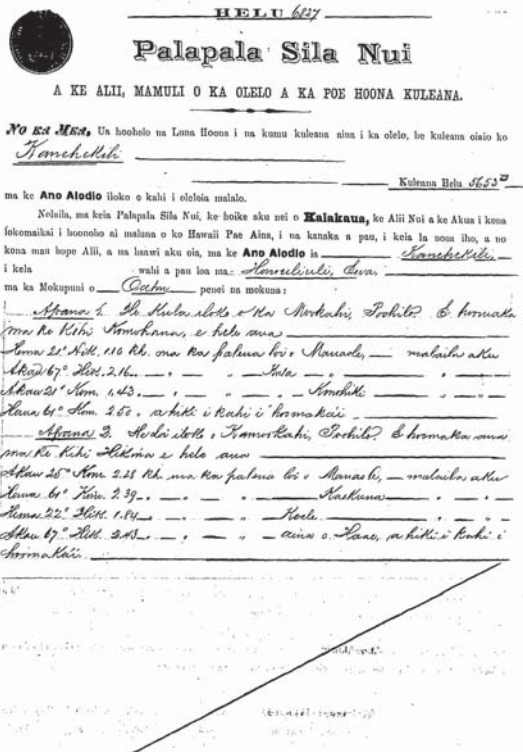 HELU 6827
Palapala Sila Nui
A KE ALII, MAMULI O KA OLELO A KA POE HOONA KULEANA.
No ka Mea, Ua hooholo na Luna Hoona i na kumu kuleana aina i ka olelo, he kuleana oiaio ko
Kanehekili
Kuleana Helu 5653
ma ke Ano Alodio iloko o kahi i oleloia malalo.
Nolaila, ma keia Palapala Sila Nui, ke hoike aku nei o Kalakaua, ke Alii Nui a ke Akua i kona
lokomaikai i hoonoho ai maluna o ko Hawaii Pae Aina, i na kanaka a pau, i keia la nona iho, a no
kona mau hope Alii, a ua haawi aku oia, ma ke Ano Alodio ia Kanehekili,
i kela wahi a pau loa ma Honouliuli, Ewa
ma ka Mokupuni o Oahu penei na mokuna:
Apana 1. He Kula iloko o ka Mookahi, Poohilo. E hoomaka
ma ke Kihi Komohana, e hele ana
Hema 21° Hik. 1.10 kh. ma ka palena loi o Manaole, malaila aku
Akau 67° Hik. 2.16 " " " Kula " "
Akau 21° Kom. 1.43 " " " Konohiki " "
Hema 61° Kom. 2.50 " a hiki i kahi i hoomakai
Apana 2. He Loi iloko o Kamookahi, Poohilo. E hoomaka ana
ma ke Kihi Hikina e hele ana
Akau 25° Kom. 2.28 kh. ma ka palena loi o Manaole, malaila aku
Hema 61° Kom. 2.39 " " " " "
Hema 22° Hik. 1.84 " " " Koele " "
Akau 67° Hik. 2.43 " " " aina o Haae, a hiki i kahi i
hoomakai.